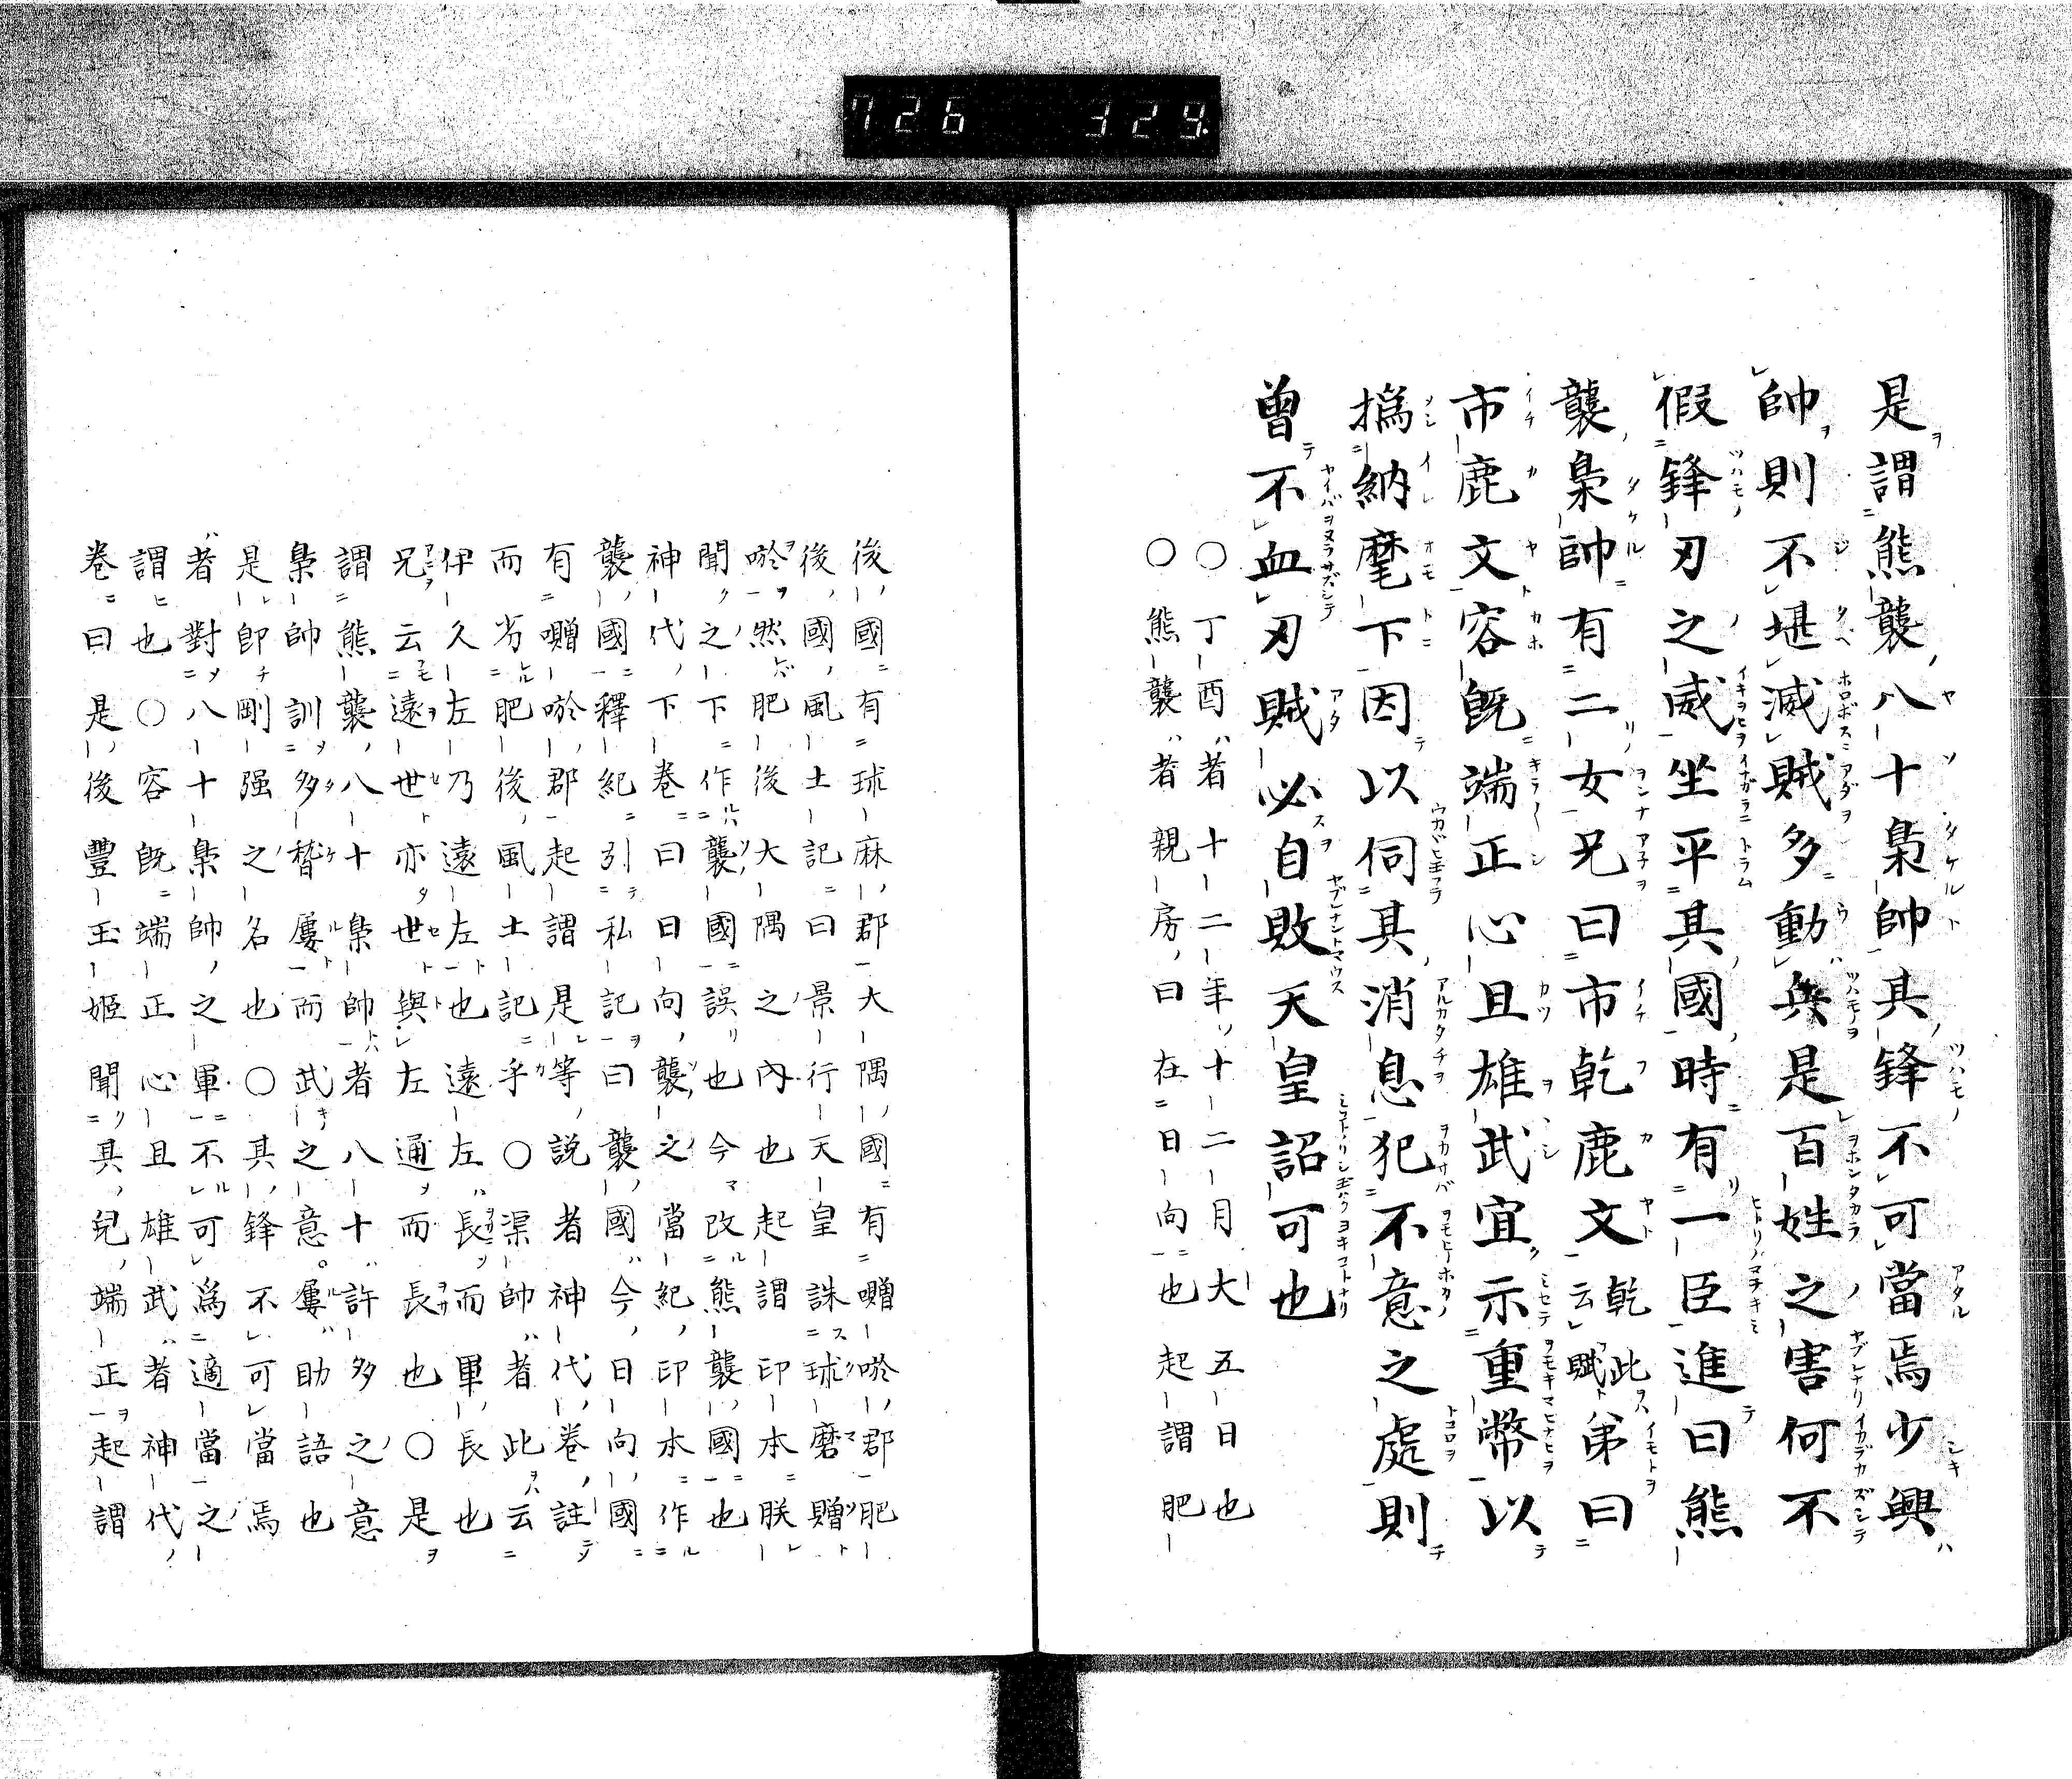 726 329.
是謂熊襲八十梟帥其鋒不可當焉少興
帥則不堪滅賊多動兵是百姓之害何不
假鋒刃之威坐平其國時有一臣進曰熊
襲梟帥有二女兄曰市乾鹿文乾此云賦弟曰
市鹿文容既端正心且雄武宜示重幣以
撝納麾下因以伺其消息犯不意之處則
曾不血刃賊必自敗天皇詔可也
〇丁酉者十二年十二月大五日也
〇熊襲者親房曰在日向也起謂肥
後國有球麻郡大隅國有囎唹郡肥
後國風土記曰景行天皇誅球磨贈
唹然肥後大隅之內也起謂印本朕
聞之下作襲國誤也今改熊襲國也
神代下卷曰日向襲之當紀印本作
襲國釋紀引私記曰襲國今日向國
有囎唹郡起謂是等說者神代卷註
而劣肥後風土記乎〇渠帥者此云
伊久左乃遠左也遠左長而軍長也
兄云遠世亦世與左通而長也〇是
謂熊襲八十梟帥者八十許多之意
梟帥訓多稽屢而武之意。屢助語也
是卽剛强之名也〇其鋒不可當焉
者對八十梟帥之軍不可爲適當之
謂也〇容既端正心且雄武者神代
卷曰是後豐玉姬聞其兒端正起謂